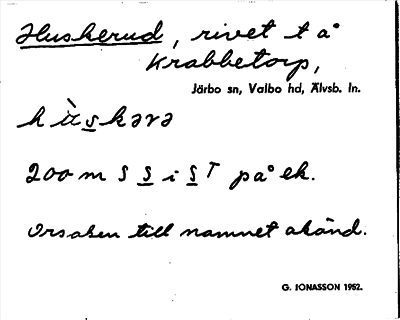 Huskerud, rivet t å
Krabbetorp,
Järbo sn, Valbo hd, Älvsb. ln.
hùskərə
200 m S S i S T på ek.
Orsaken till namnet okänd.
G. JONASSON 1952.